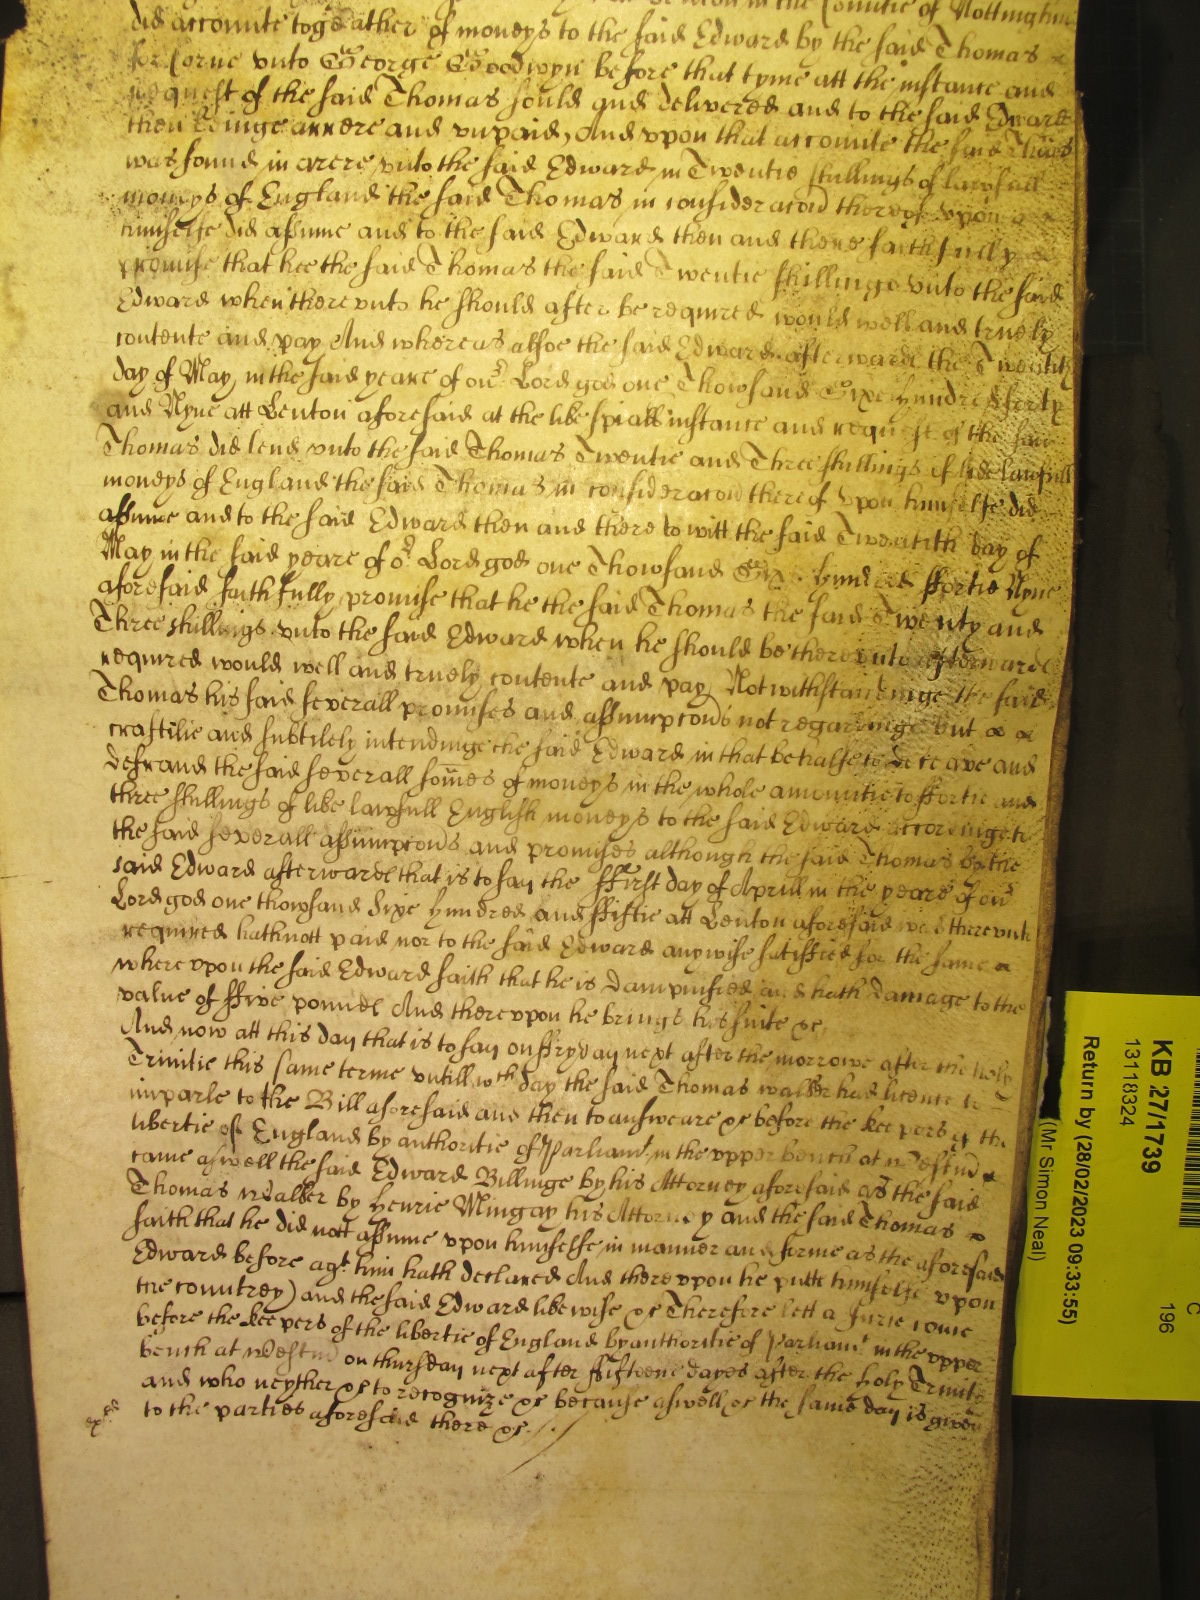 in the Countie of Nottingham
did accounte togeather of moneys to the said Edward by the said Thomas
for Corne unto George Goodwyn before that tyme att the instance and
request of the said Thomas sould and delivered and to the said Edward
then beinge arrere and unpaid, And upon that accounte the said Thomas
was found in arere unto the said Edward in Twentie shillings of lawfull
moneys of England the said Thomas in consideracon thereof upon
himselfe did assume and to the said Edward then and there faithfully
promise that hee the said Thomas the said Twentie shillings unto the said
Edward when thereunto he should after be required would well and truely
contente and pay And whereas alsoe the said Edward afterwards the Twentith
day of May in the said yeare of our Lord god one Thowsand Sixe hundred forty
and Nyne att Lenton aforesaid at the like speciall instance and request of the said
Thomas did lend unto the said Thomas Twentie and Three shillings of like lawfull
moneys of England the said Thomas in consideracon thereof upon himselfe did
assume and to the said Edward then and there to witt the said Twentith day of
May in the said yeare of or Lord god one Thowsand Sixe hundred ffortie Nyne
aforesaid faithfully promise that he the said Thomas the said Twenty and
Three shillings unto the said Edward when he should be thereunto afterwards
required would well and truely contente and pay, Notwithstandinge the said
Thomas his said severall promises and assumpcons not regardinge but
craftilie and subtilely intendinge the said Edward in that behalfe to deceave and
defraud the said severall somes of moneys in the whole amountinge to ffortie and
three shillings of like lawfull English moneys to the said Edward accordinge to
the said severall assumpcons and promises although the said Thomas by the
said Edward afterwards that is to say the ffirst day of Aprill in the yeare of our
Lord god one thowsand Sixe hundred and ffiftie att Lenton aforesaid was thereunto
required hath nott paid nor to the said Edward anywise satisfied for the same
whereupon the said Edward saith that he is dampnified and hath damage to the
value of ffive pounds And thereupon he brings his suite &c,
And now att this day that is to say on ffryday next after the morrowe after the holy
Trinitie this same terme untill wch day the said Thomas walker had licence to
imparle to the Bill aforesaid and then to answeare &c before the keepers of the
libertie of England by authoritie of Parliamt in the upper bench at Westm
came aswell the said Edward Billinge by his Attorney aforesaid as the said
Thomas Walker by Henrie Mingay his Attorney and the said Thomas
saith that he did nott assume upon himselfe in manner and forme as the aforesaid
Edward before agt him hath declared And thereupon he putts himselfe upon
the countrey) and the said Edward likewise &c Therefore lett a Jurie come
before the keepers of the libertie of England by authoritie of Parliamt in the upper
bench at Westm on thursday next after ffifteene dayes after the holy Trinitie
and who neyther &c to recognize &c because aswell &c the same day is given
to the parties aforesaid there &c.
KB 27/1739
13118324
196
C
Return by (28/02/2023 09:33:55)
(Mr Simon Neal)